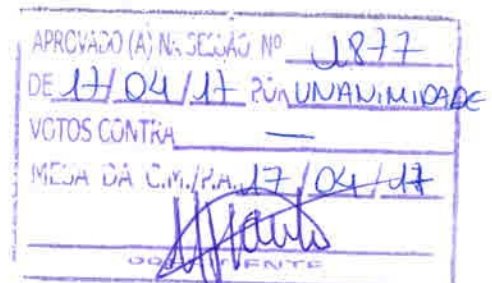 APROVADO (A) NA SESSÃO Nº 1877
DE 17/04/17 POR UNANIMIDADE
VOTOS CONTRA —
MESA DA C.M./P.A. 17/04/17